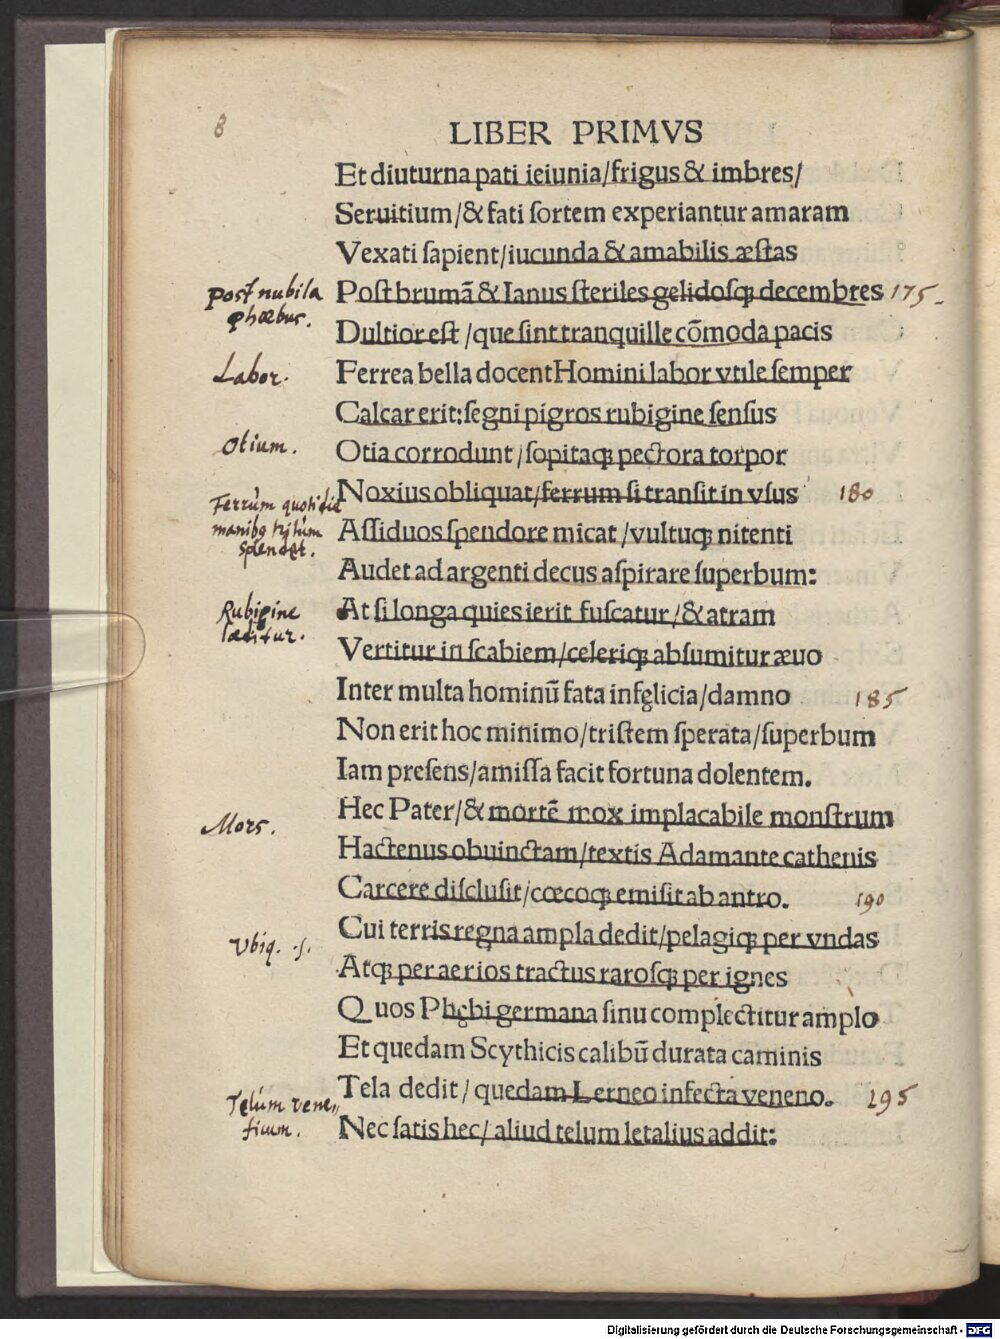 8
LIBER PRIMVS
Et diuturna pati ieiunia/frigus & imbres/
Seruitium/& fati ſortem experiantur amaram
Vexati ſapient/iucunda & amabilis æſtas
Post nubila
phœbus.
Poſt brumã & Ianus ſteriles gelidoſqꝫ decembres 175.
Dultior eſt /que ſint tranquille cõmoda pacis
Labor.
Ferrea bella docent Homini labor vtile ſemper
Calcar erit:ſegni pigros rubigine ſenſus
Otium.
Otia corrodunt/ſopitaqꝫ pectora torpor
Noxius obliquat/ferrum ſi tranſit in vſus 180
Ferrùm quotidie
manibꝰ tritùm
splendet.
Aſſiduos ſpendore micat/vultuqꝫ nitenti
Audet ad argenti decus aſpirare ſuperbum:
Rubigine
læditur.
At ſi longa quies ierit fuſcatur/& atram
Vertitur in ſcabiem/celeriqꝫ abſumitur æuo
Inter multa hominũ fata infęlicia/damno 185
Non erit hoc minimo/triſtem ſperata/ſuperbum
Iam preſens/amiſſa facit fortuna dolentem.
Hec Pater/& mortẽ mox implacabile monſtrum
Mors.
Hactenus obuinctam/textis Adamante cathenis
Carcere diſcluſit/cœcoqꝫ emiſit ab antro. 190
Cui terris regna ampla dedit/pelagiqꝫ per vndas
Vbiq. .s.
Atqꝫ per aerios tractus raroſqꝫ per ignes
Quos Phębi germana ſinu complectitur amplo
Et quedam Scythicis calibũ durata caminis
Tela dedit/ quedam Lerneo infecta veneno. 195
Telùm vene„
ficum.
Nec ſatis hec/aliud telum letalius addit:
Digitalisierung gefördert durch die Deutsche Forschungsgemeinschaft - DFG